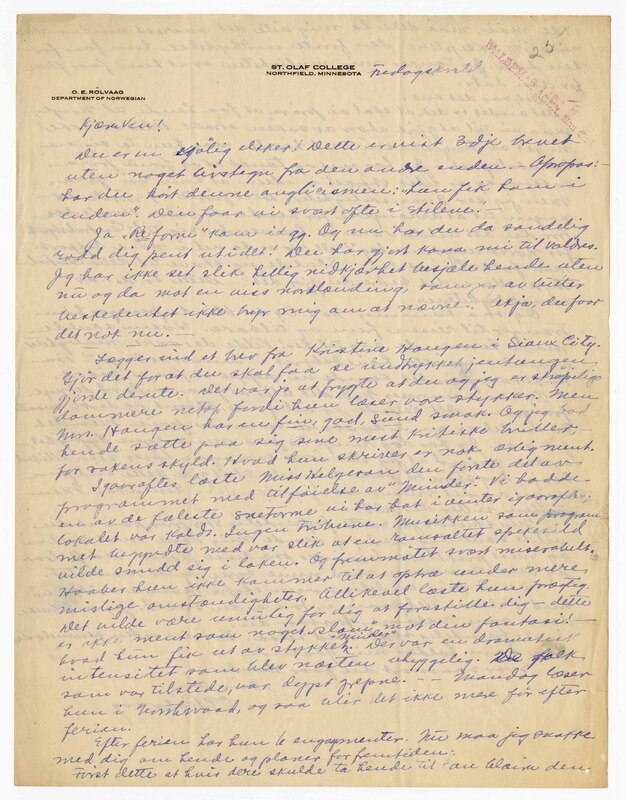 ST. OLAF COLLEGE
NORTHFIELD, MINNESOTA
Fredagskveld
25
O. E. RÖLVAAG
DEPARTMENT OF NORWEGIAN
Kjære Van!
Du er en sjölig elsker! Dette er vist 3dje brevet
uten noget livstegn fra den andre enden. – Apropos: –
har du hört denne anglicismen: "hun fik ham i
enden". Den faar vi svært ofte i stilene!
Ja "Reform" kom idag. Og nu har du da sandelig
rodd dig pent ut i det! Du har gjort kava mi til valdres.
Jeg har ikke set slik hellig nidkjærhet besjæle hende uten
nu og da mot en viss nordlænding, som jeg av bitter
beskedenhet ikke bryr mig om at nævne. ekja, den foor
det not nu. –
Lægger ind et brev fra Kristine Haugen i Sioux City.
Gjör det for at du skal faa se indtrykket jentungen
gjorde derute. Det var jo at frygte at du og jeg er skröpelige
dommere netop fordi hun læser vore stykker. Men
Mrs. Haugen har en fin, god, sund smak. Og jeg bad
hende sætte paa sig sine mest kritiske briller
for saken's skyld. Hvad hun skriver er nok ærlig ment.
Igaaraftes læste Miss Helgeson den förste del av
programmet med tilföielse av "Minder". Vi hadde
en av de fæleste sneforme vi har hat i vinter igaaraftes;
lokalet var koldt. Ingen tribune. Musikken som program-
met begyndte med var slik at en ramsaltet spekesild
vilde snudd sig i laken. Og frammötet svært miserabelt.
Haaber hun ikke kommer til at optræ under mere
mislige omstændigheter. Allikevel læste hun prægtig
Det vilde være umulig for dig at forestille dig – dette
er ikke ment som noget "slam" mot din fantasi! –
hvad hun fik ut av stykket "Minder". Der var en dramatisk
intensitet som blev næsten uhyggelig. De folk
som var tilstede, var dypt grepne. – – Mandag læser
hun i Northwood, og saa blir det ikke mere för efter
ferien.
Efter ferien har hun 6 engagementer. Nu maa jeg snakke
med dig om hende og planer for fremtiden:
Först dette at hvis dere skulde ta hende til Eau Claire den